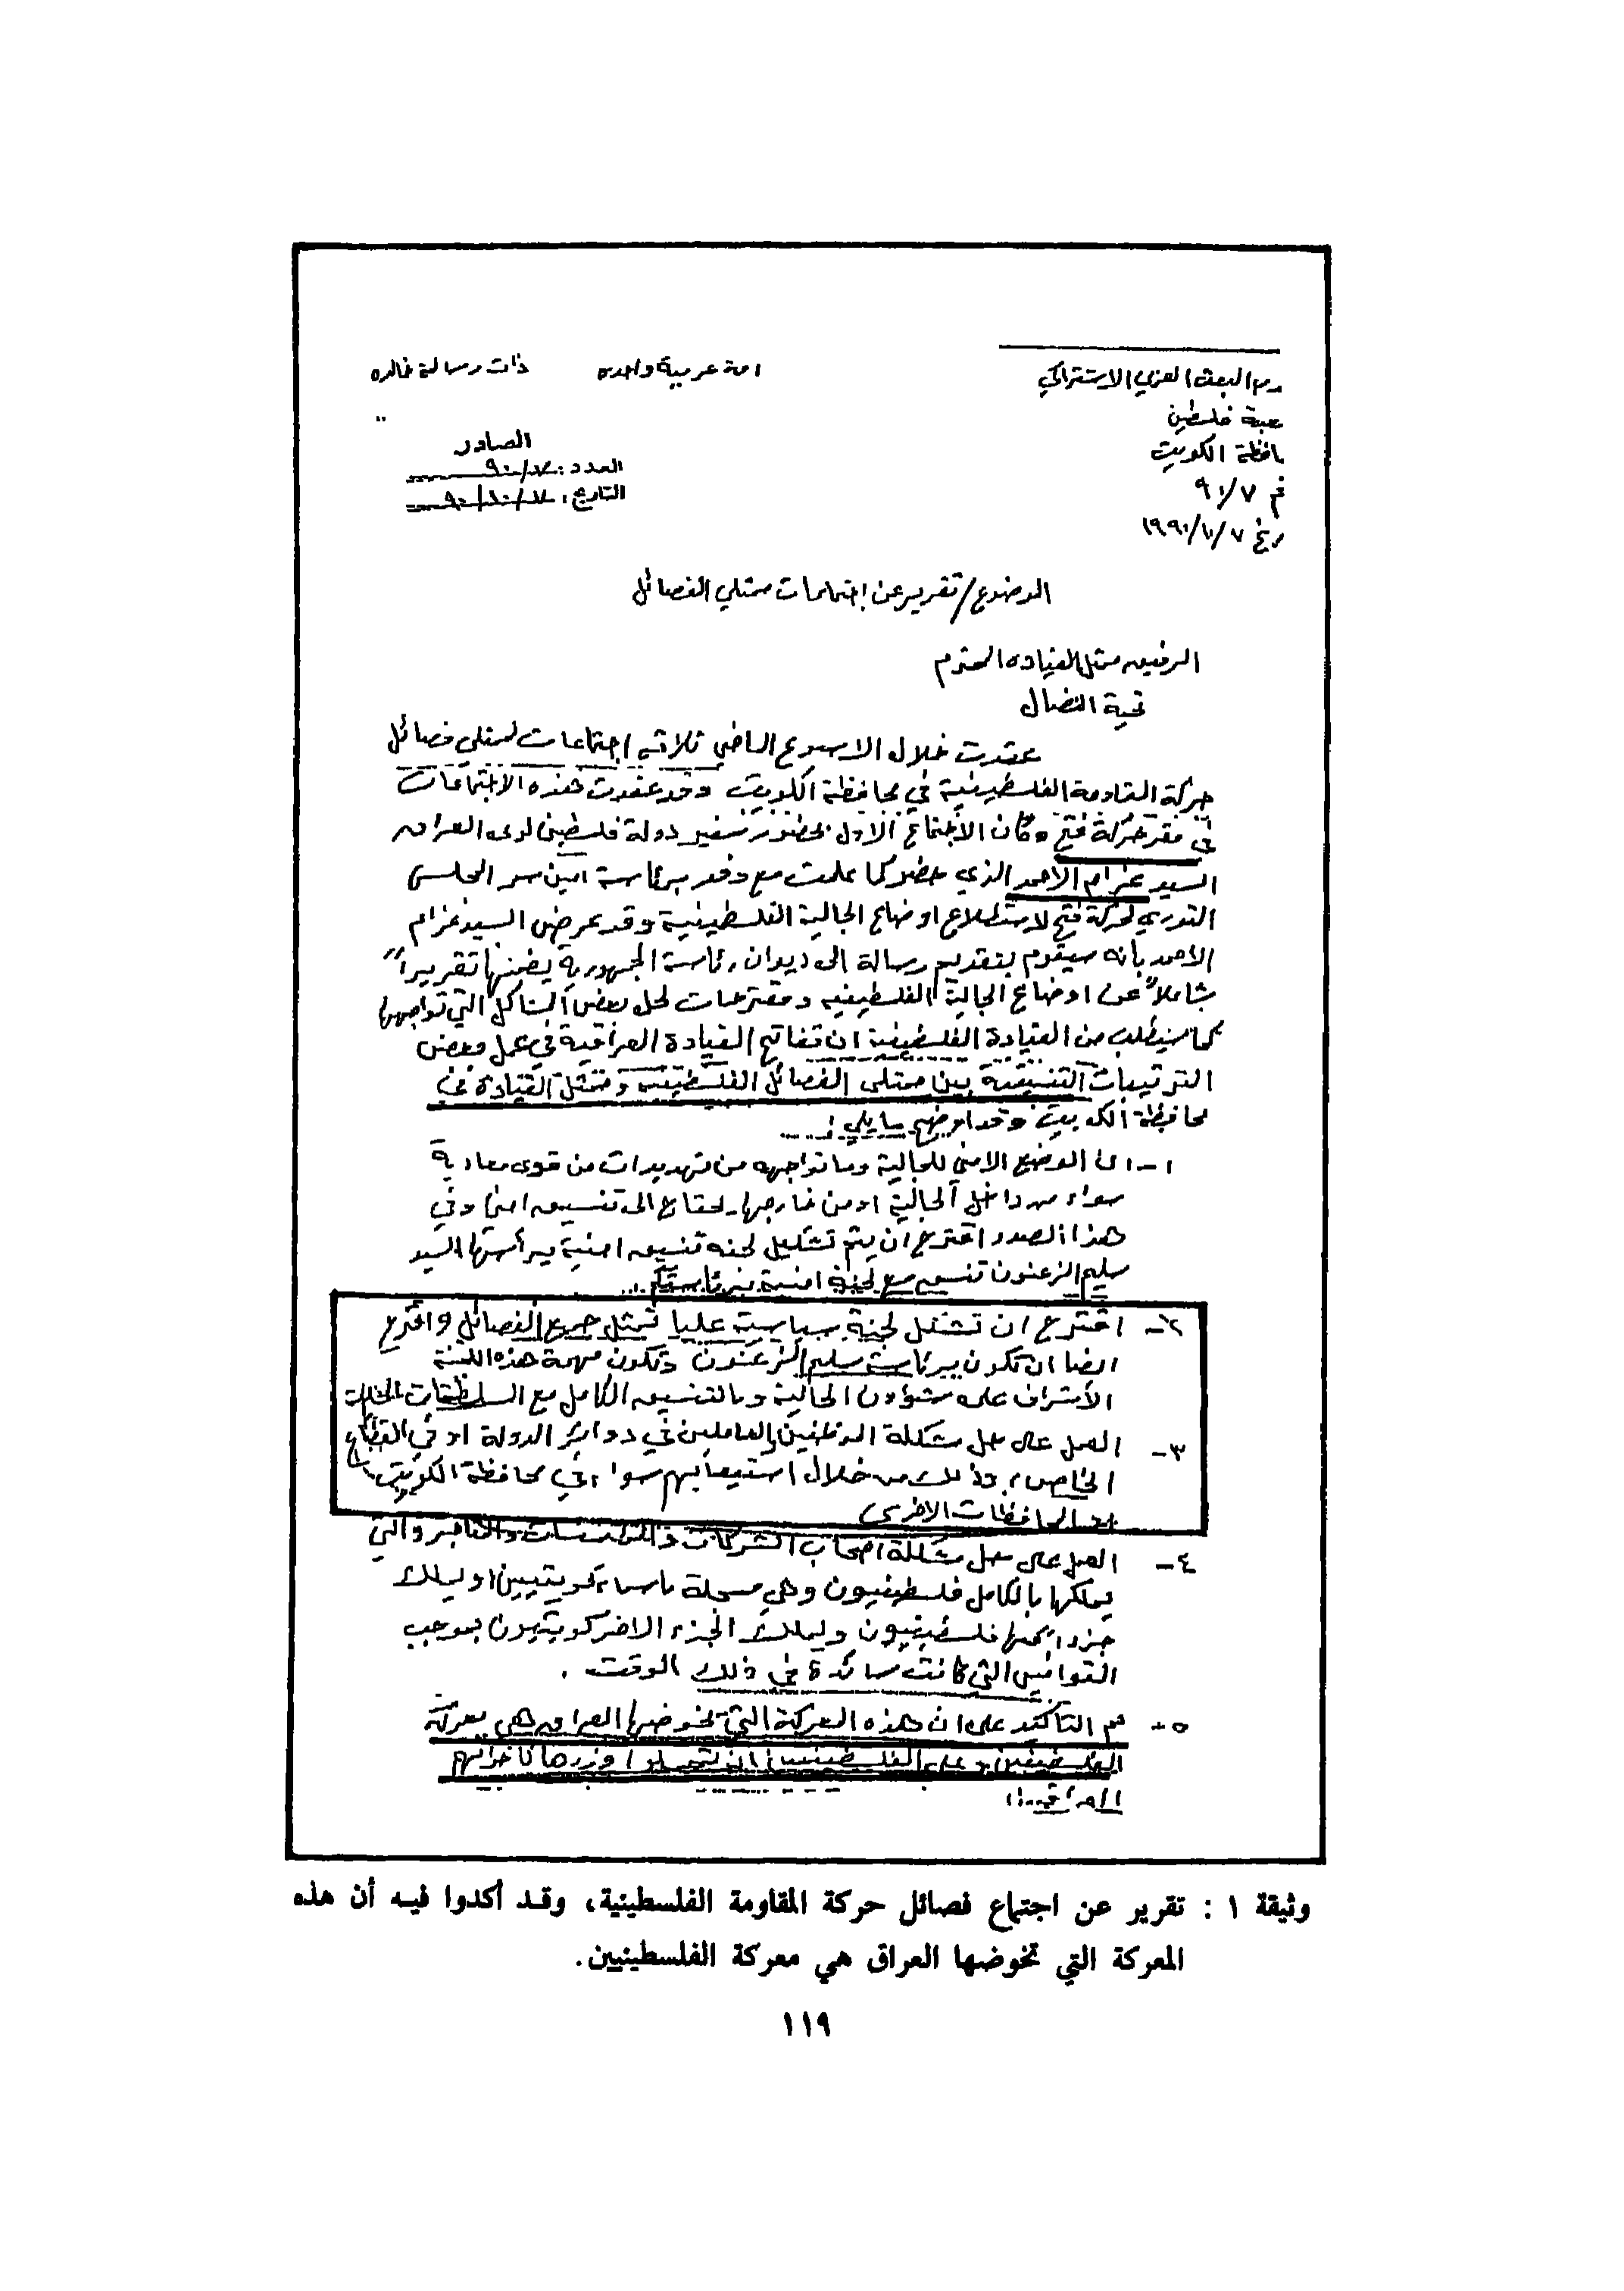 امة عربية واحده
ذات رسالة خالده
البعث العربي الاشتراكي
فلسطين
الكويت
٩٠/٧
١٩٩٠/١٠/٧
الصادر
العدد :
التاريخ :
الموضوع / تقرير عن إجتماعات ممثلي الفصائل
الرفيق ممثل القيادة المحترم
تحية النضال
عقدت خلال الاسبوع الماضي ثلاثه اجتماعات لممثلي فصائل
حركة المقاومة الفلسطينية في محافظة الكويت وقد عقدت هذه الاجتماعات
في مقر حركة فتح وكان الاجتماع الاول بحضور سفير دولة فلسطين لدى العراق
السيد عزام الاحمد الذي حضر كما علمت مع وفد برئاسة امين سر المجلس
الثوري لحركة فتح لاستطلاع اوضاع الجالية الفلسطينية وقد عرض السيد عزام
الاحمد بأنه سيقوم بتقديم رسالة الى ديوان رئاسة الجمهورية يضمنها تقريراً
شاملاً عن اوضاع الجالية الفلسطينيه ومقترحات لحل بعض المشاكل التي تواجهها
كما سيطلب من القيادة الفلسطينية ان تفاتح القيادة العراقية في عمل بعض
الترتيبات التنسيقية بين ممثلي الفصائل الفلسطينية وممثل القيادة في
محافظة الكويت وقد اوضح مايلي :
١- ان الوضع الامني للجالية وما تواجهه من تهديدات من قوى معادية
سواء من داخل الجالية او من خارجها يحتاج الى تنسيق امني وفي
هذا الصدد اقترح ان يتم تشكيل لجنه تنسيق امنية يرأسها السيد
سليم الزعنون تنسق مع لجنة امنية برئاستكم ...
٢- اقترح ان تشكل لجنة سياسية عليا تمثل جميع الفصائل واقترح
ايضا ان تكون برئاسة سليم الزعنون وتكون مهمة هذه اللجنة
الأشراف على شؤون الجالية وبالتنسيق الكامل مع السلطات المختلفة
٣- العمل على حل مشكلة الموظفين العاملين في دوائر الدولة او في القطاع
الخاص وذلك من خلال استيعابهم سواء في محافظة الكويت
او المحافظات الاخرى
٤- العمل على حل مشكلة اصحاب الشركات والمؤسسات والمتاجر والتي
يملكها بالكامل فلسطينيون وهي مسجلة باسماء كويتيين او يملك
جزءا منها فلسطينيون ويملك الجزء الاخر كويتيون بموجب
القوانين التي كانت سائدة في ذلك الوقت .
٥- تم التأكيد على ان هذه المعركة التي يخوضها العراق هي معركة
الفلسطينين وعلى الفلسطينيين ان يتحملوا وزرها كأخوانهم
وثيقة ١ : تقرير عن اجتماع فصائل حركة المقاومة الفلسطينية، وقد أكدوا فيه أن هذه
المعركة التي تخوضها العراق هي معركة الفلسطينيين.
١١٩